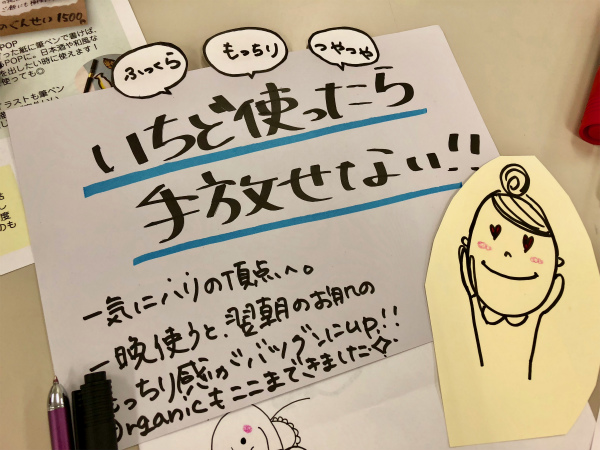 ふっくら
もっちり
つやつや
いちど使ったら
手放せない!!
一気にハリの頂点へ。
一晩使うと、翌朝のお肌の
もっちり感がバツグンにup!!
Organicもここまできました
のくんせい 1500
POP
った紙に筆ペンで書けば、
POPに。日本酒や和風な
を出したい時に使えます!
使っても◎
イラストも筆ペン